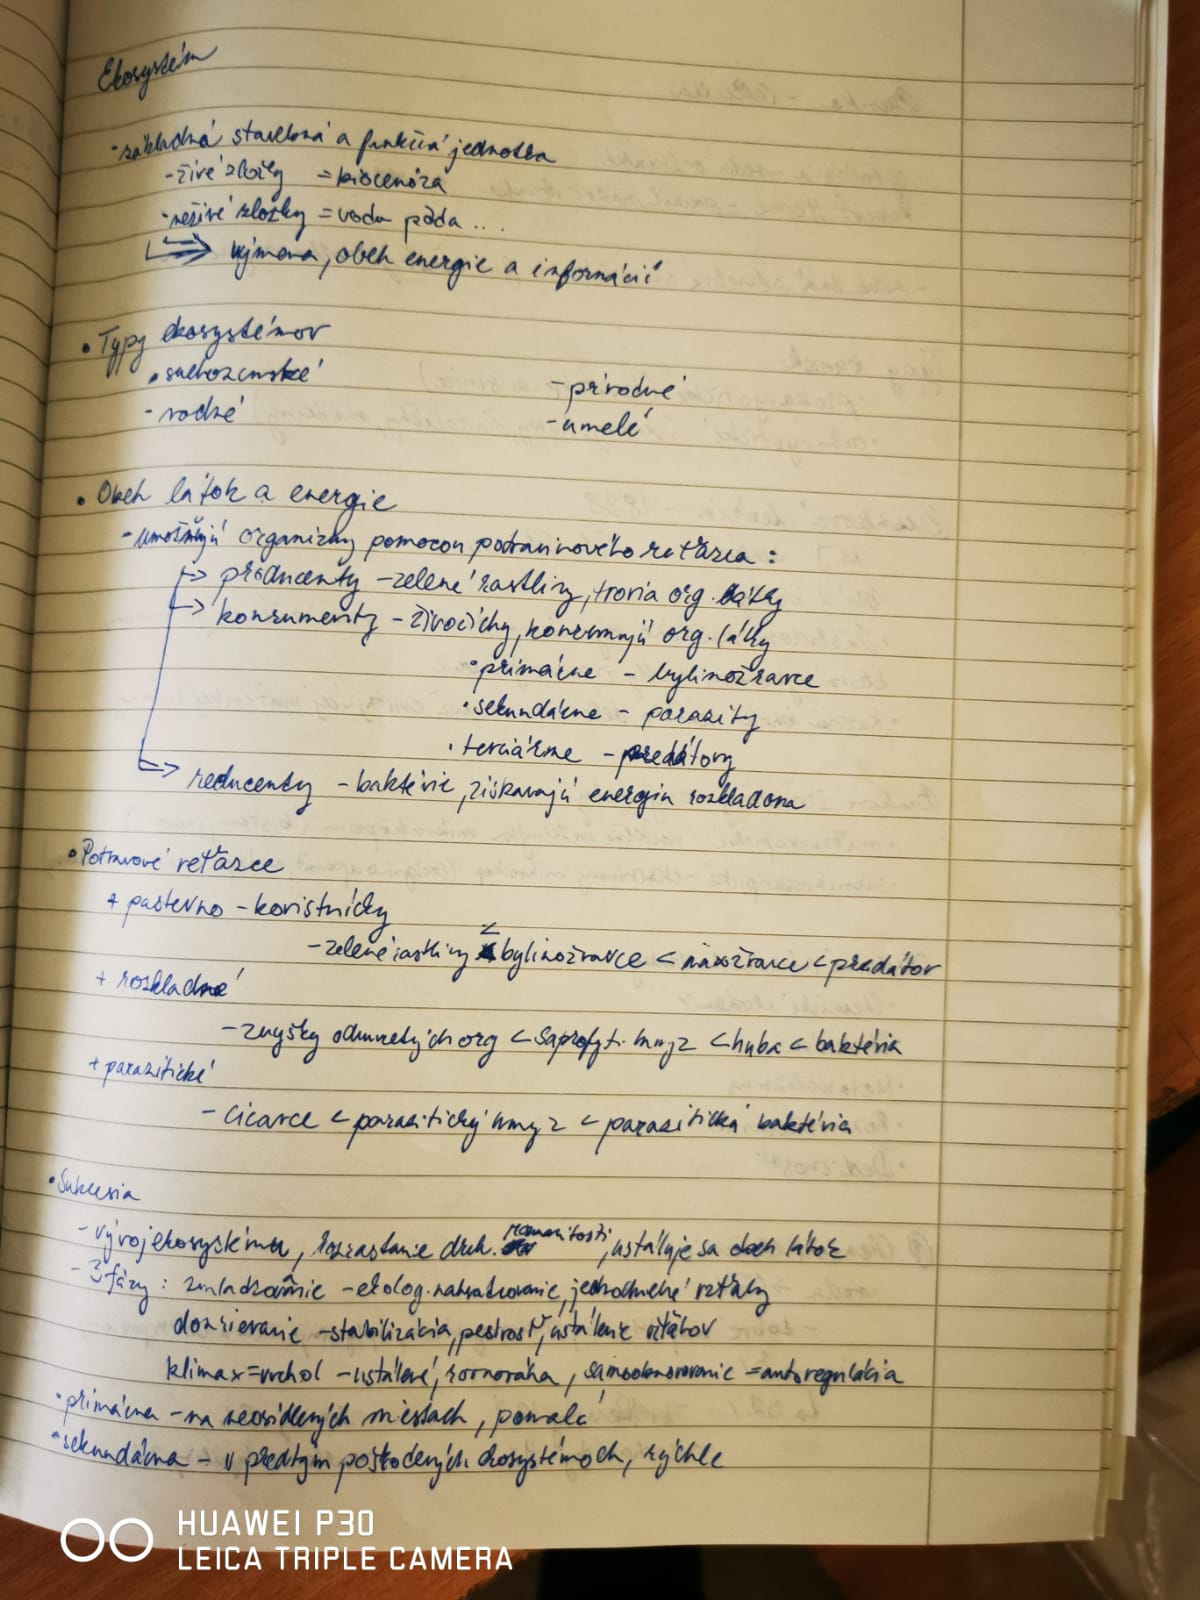 Ekosystém
- základná stavebná a funkčná jednotka
- živé zložky = biocenóza
- neživé zložky = voda pôda ...
výmena, obeh energie a informácií
• Typy ekosystémov
• suchozemské - prírodné
- vodné - umelé
• Obeh látok a energie
- umožňujú organizmy pomocou potravinového reťazca :
producenty - zelené rastliny, tvoria org. látky
konzumenty - živočíchy, konzumujú org. látky
• primárne - bylinožravce
• sekundárne - parazity
• terciárne - predátory
reducenty - baktérie, získavajú energiu rozkladom
• Potravové reťazce
+ pastevno - koristnícky
- zelené rastliny < bylinožravce < mäsožravce < predátor
+ rozkladné
- zvyšky odumretých org < saprofyt. hmyz < huba < baktéria
+ parazitické
- cicavce < parazitický hmyz < parazitická baktéria
• Sukcesia
- vývoj ekosystému, rozrastanie druh. rozmanitosti, ustaľuje sa obeh látok
- 3 fázy : zmladzovanie - ekolog. nahradzovanie, jednoduché vzťahy
dozrievanie - stabilizácia, pestrosť, ustálenie vzťahov
klimax = vrchol - ustálené, rovnováha, samoobnovovanie = autoregulácia
• primárna - na neosídlených miestach, pomalá
• sekundárna - v predtým poškodených ekosystémoch, rýchle
HUAWEI P30
LEICA TRIPLE CAMERA